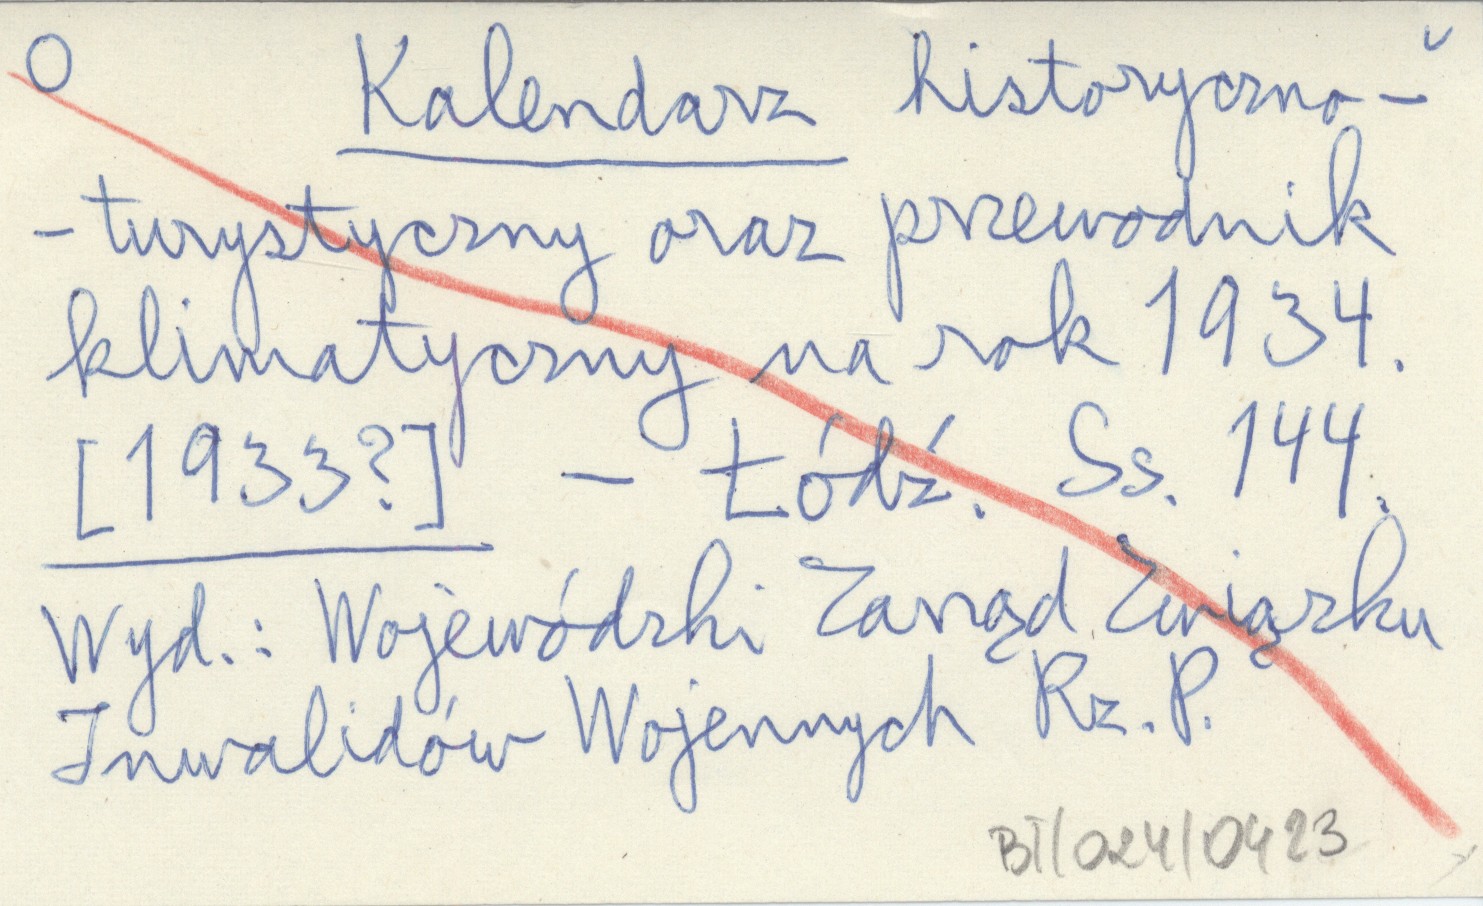 O Kalendarz historyczno-
-turystyczny oraz przewodnik
klimatyczny na rok 1934.
[1933?] - Łódź. Ss. 144.
Wyd.: Wojewódzki Zarząd Związku
Inwalidów Wojennych Rz. P.
BT/024/0423